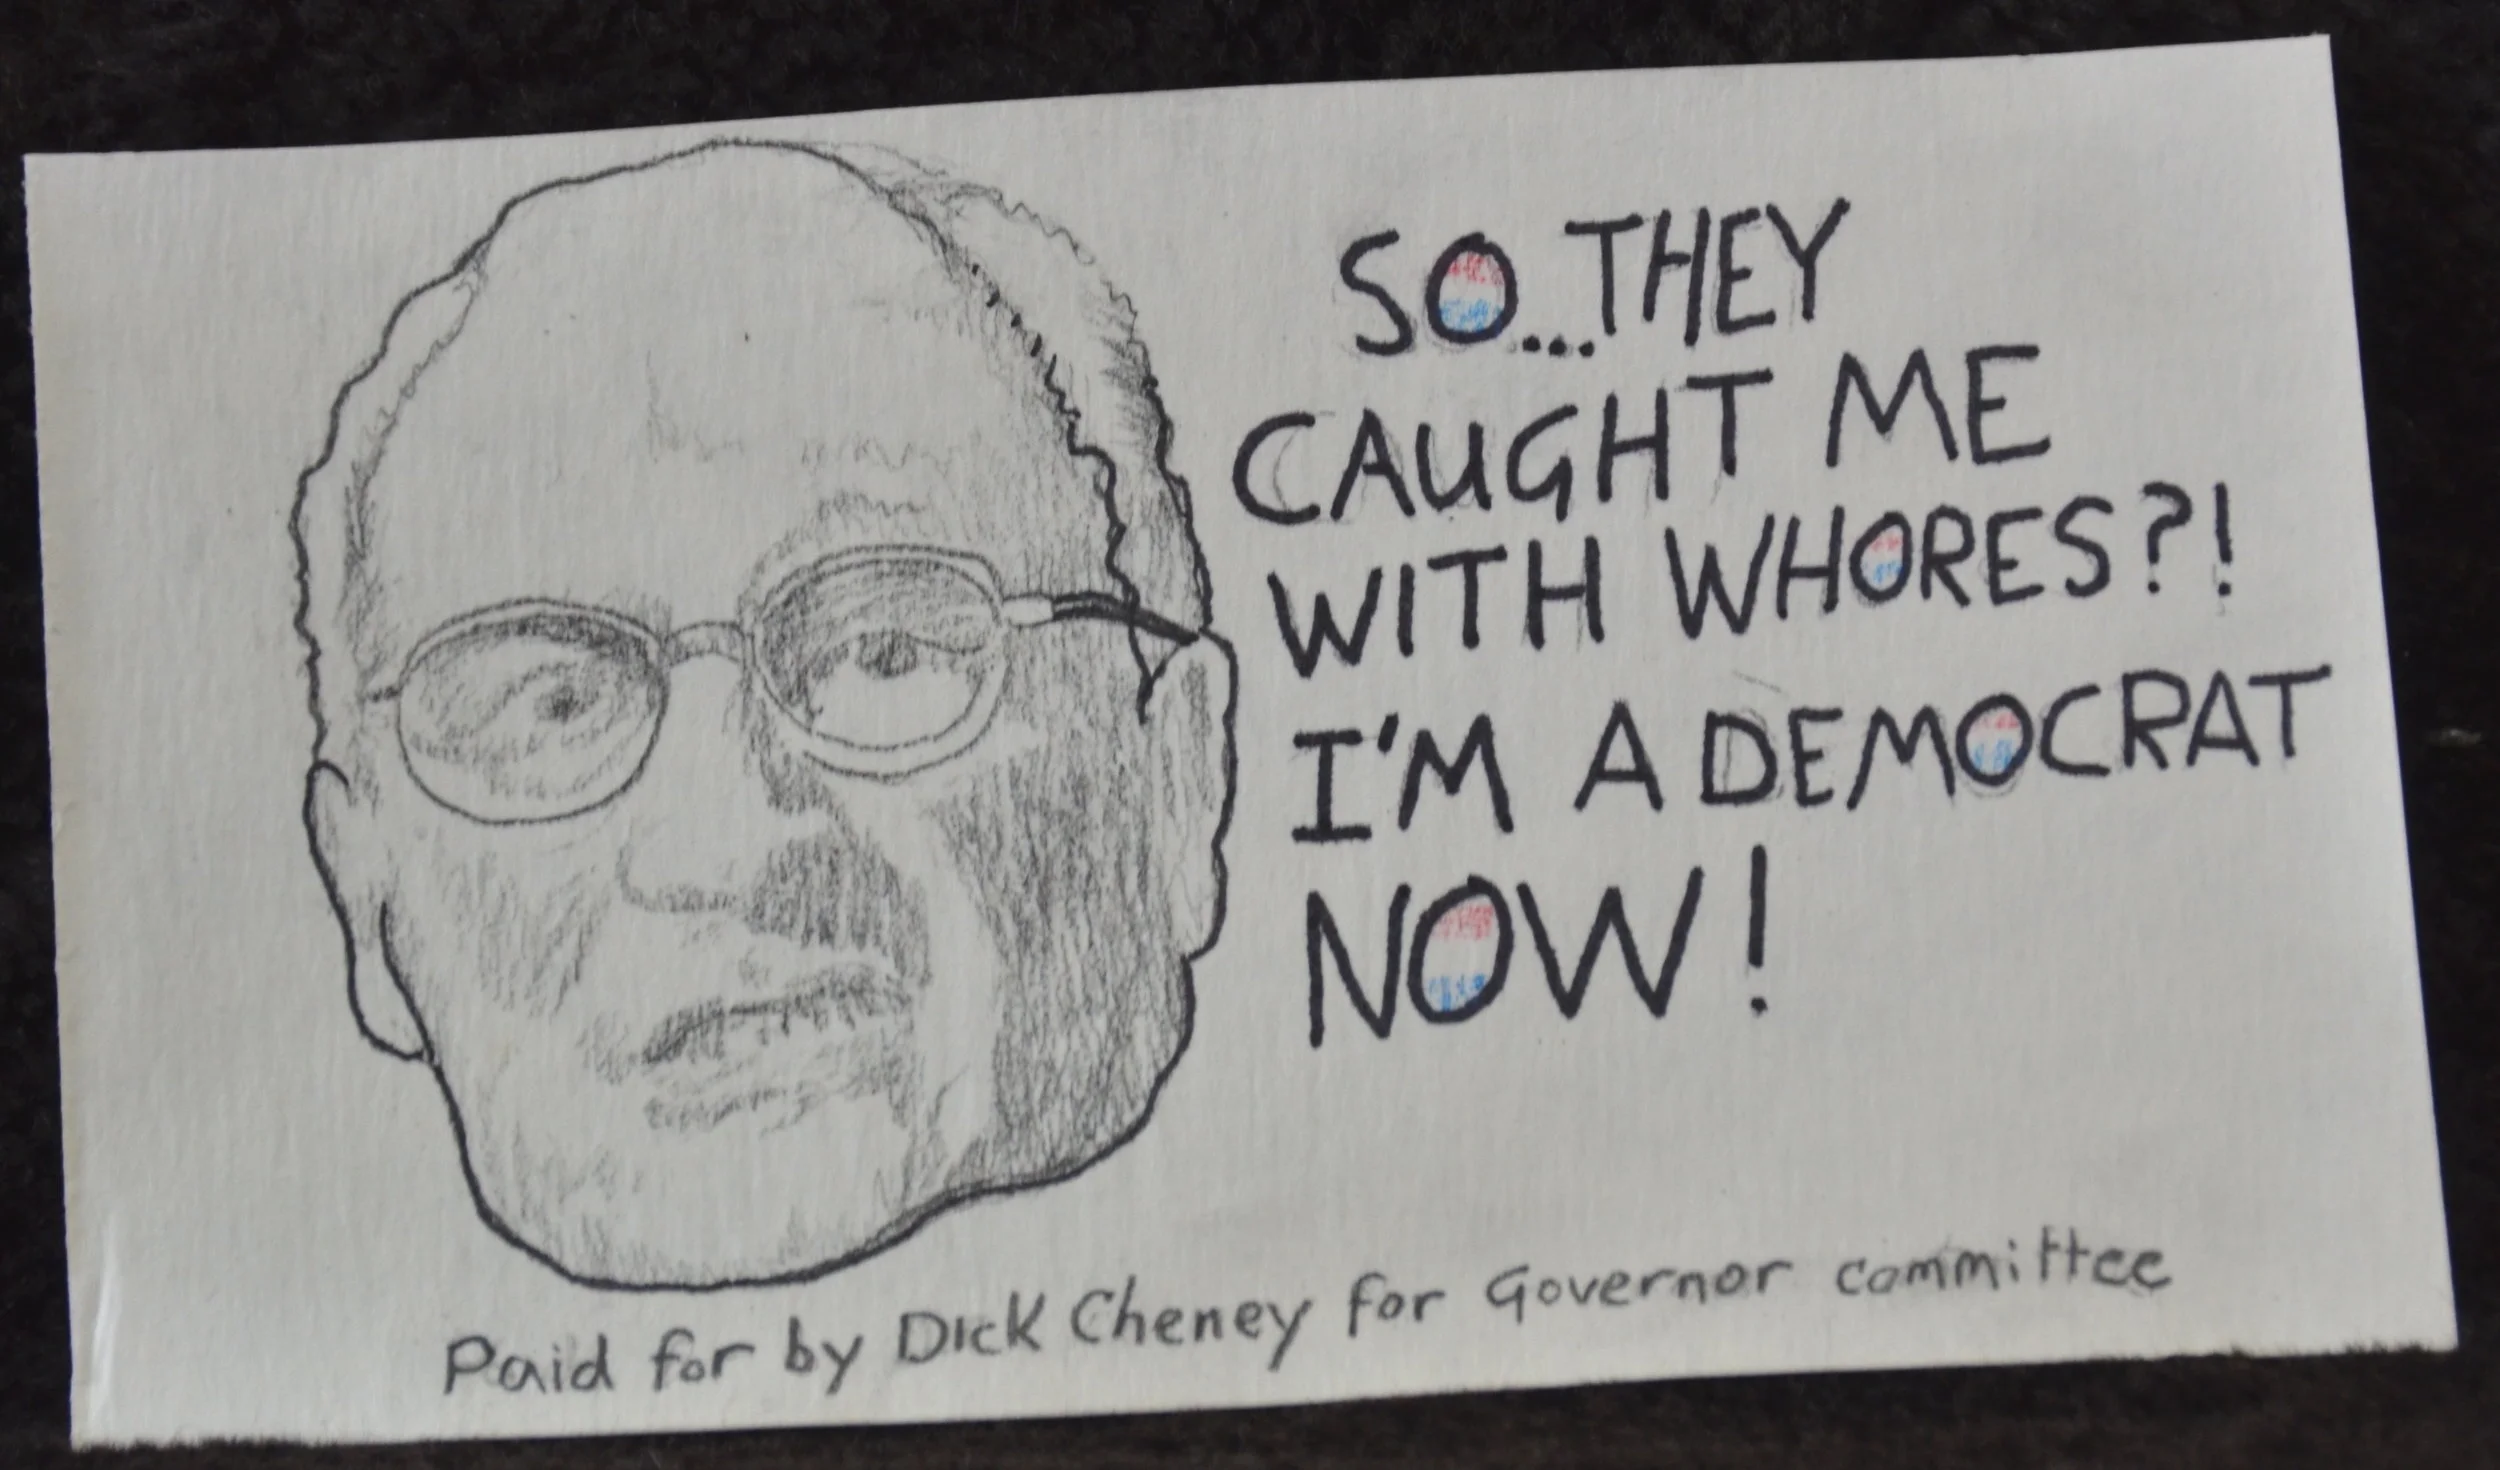 SO...THEY
CAUGHT ME
WITH WHORES?!
I'M A DEMOCRAT
NOW!
Paid for by Dick Cheney for Governor committee